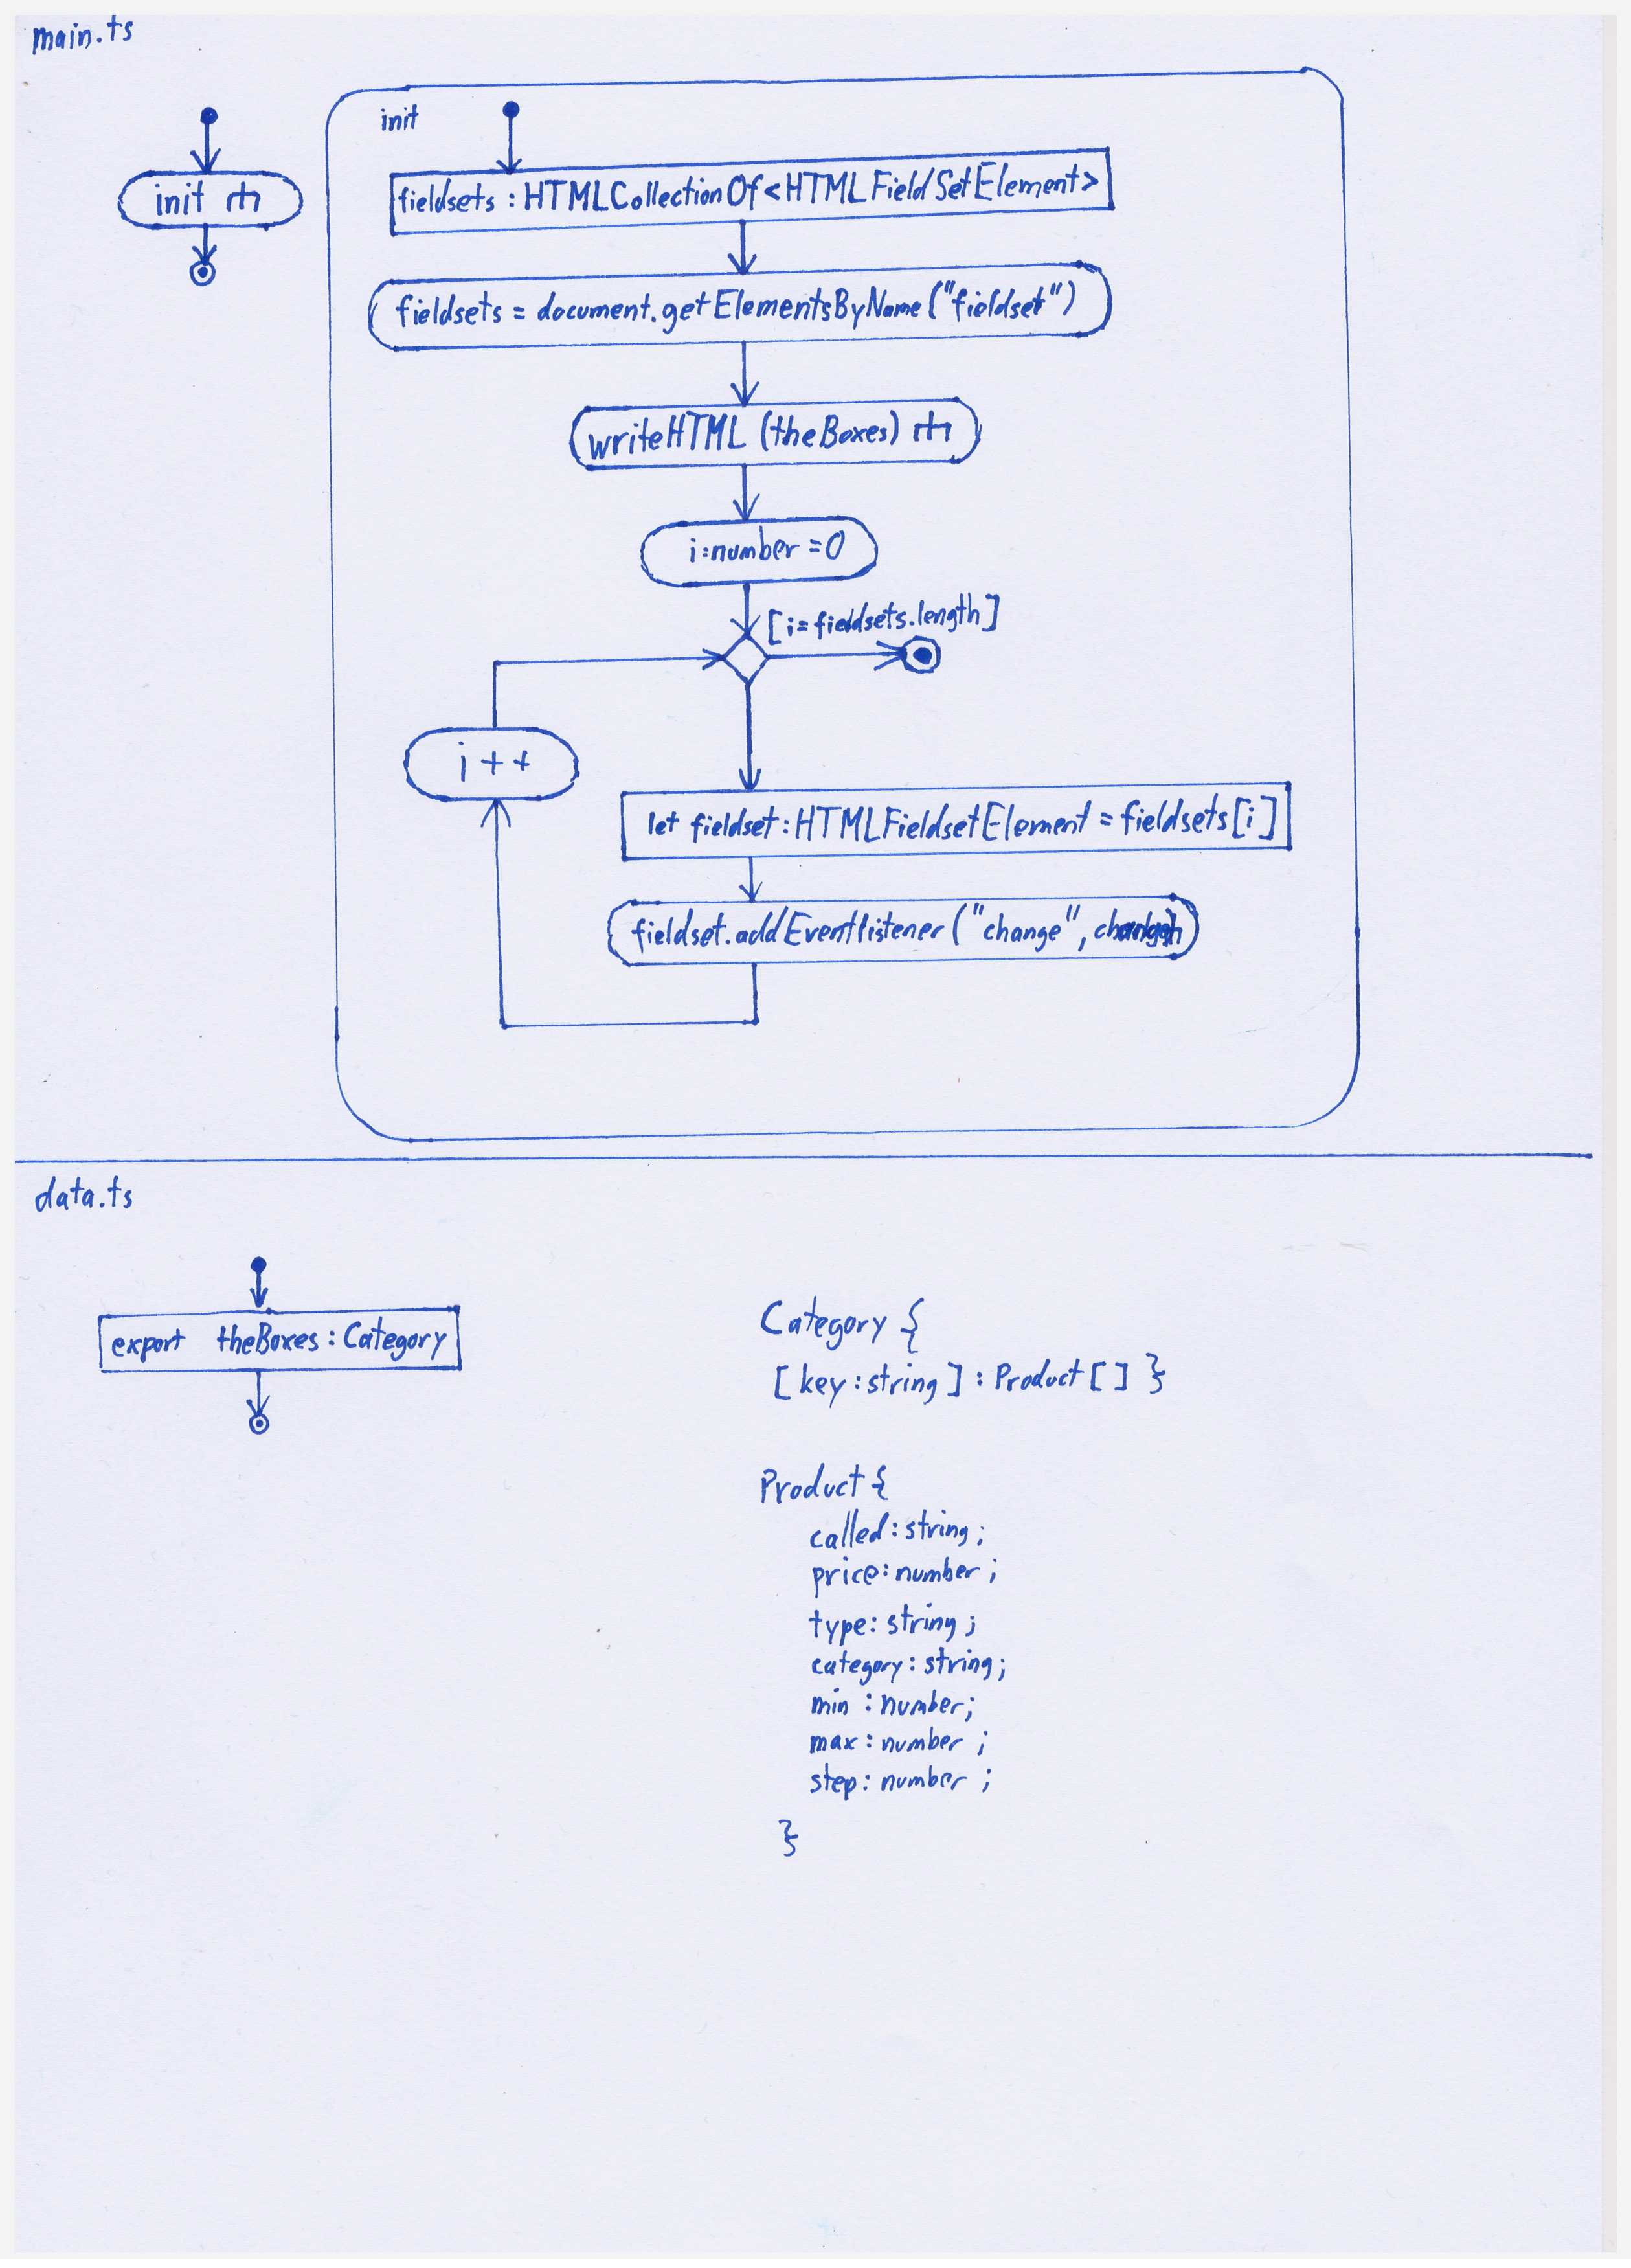 main.ts
init
init
fieldsets : HTMLCollectionOf<HTMLFieldSetElement>
fieldsets = document.getElementsByName("fieldset")
writeHTML (theBoxes)
i:number = 0
[i=fieldsets.length]
i++
let fieldset:HTMLFieldsetElement = fieldsets[i]
fieldset.addEventlistener("change", change)
data.ts
export theBoxes : Category
Category {
[key:string] : Product[] }
Product {
called: string;
price: number;
type: string;
category: string;
min : number;
max : number;
step: number;
}